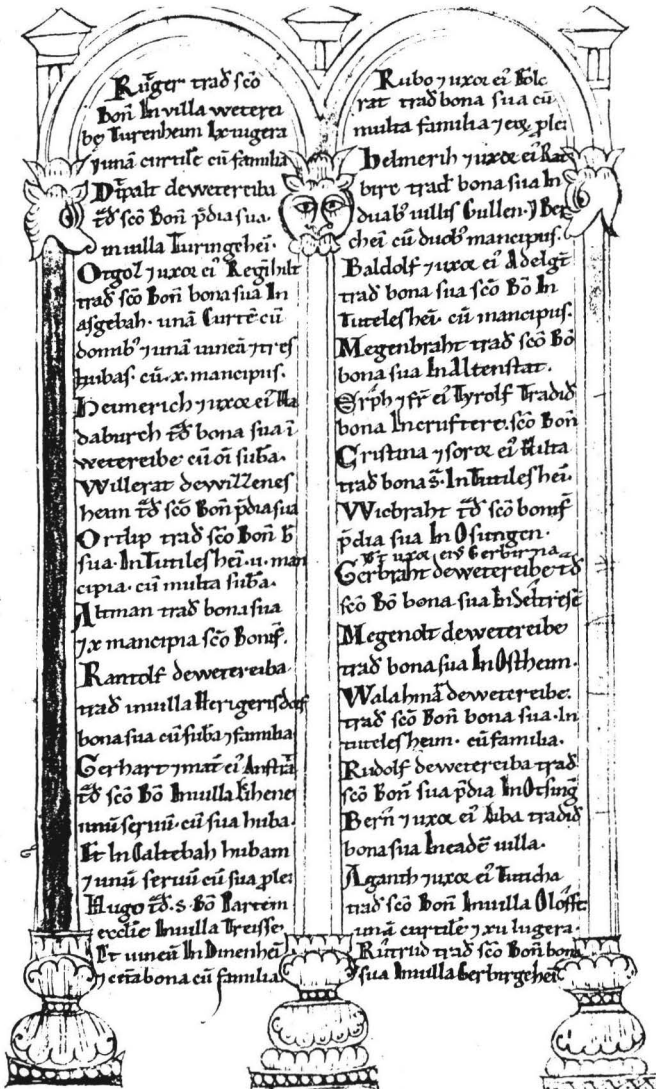 Růger trad̄ sc̄o
Bon̄ In villa weterei
be Turenheim lx iugera
⁊ unā curtilē cū familia
Dip̄alt de wetereiba
t̄d sc̄o Bon̄ p̄dia sua
in uilla Turingehei.̄
Otgoz ⁊ uxor ei᾽ Regīhilt
trad̄ sc̄o Bon̄ bona sua In
asgebah. unā Curtē cū
domib᾽ ⁊ unā uineā ⁊ tres
hubas. cū .x. mancipiis.
Heimerich ⁊ uxor ei᾽ Ha
daburch t̄d bona sua ī
wetereibe cū oī sub̄a.
Willerat de willenes
heim t̄d sc̄o Bon̄ p̄dia sua
Ortlip trad̄ sc̄o Bon̄ b̄
sua. In Tutileshei.̄ u. man
cipia. cū multa sub̄a.
Altman trad̄ bona sua
⁊ x mancipia sc̄o Bonif̄.
Rantolf de wetereiba
trad̄ in uilla Herigerisdorf
bona sua cū sub̄a ⁊ familia
Gerhart ⁊ mat̄ ei᾽
t̄d sc̄o Bō In uilla
unū seruū. cū sua huba.
Et In Caltebah hubam
⁊ unū seruū cū sua plei
Hugo t̄d. s. Bō Partem
ecclīe In uilla Treisse.
Et uineā In Dinenhei
⁊ cet̄a bona cū familia.
Rubo ⁊ uxor ei᾽ Folc
rat trad̄ bona sua cū
multa familia ⁊ eoꝝ plei
Helmerih ⁊ uxor ei᾽ Rat
birc trad̄ bona sua In
duab᾽ uillis Cullen. ⁊ Ber
chei cū duob᾽ mancipiis.
Baldolf ⁊ uxor ei᾽ Adelgt̄
trad̄ bona sua sc̄o Bō In
Tuteleshei.̄ cū mancipiis.
Megenbraht trad̄ sc̄o Bō
bona sua In Altenstat.
Erp̄h ⁊ fr̄ ei᾽ Tyrolf Tradid̄
bona In cruftere. sc̄o Bon̄
Cristina ⁊ soror ei᾽ Hilta
trad̄ bona s̄. In Tutileshei.̄
Wicbraht t̄d sc̄o bonif̄
p̄dia sua In Osungen.
⁊ uxor ei᾽ Gerbirna
Gerbraht de wetereibe t̄d
sc̄o Bō bona sua In
Megenolt de wetereibe
trad̄ bona sua In Ostheim.
Walahmā de wetereibe.
trad̄ sc̄o Bon̄ bona sua. In
tutelesheim. cū familia.
Rudolf de wetereiba trad̄
sc̄o Bon̄ sua p̄dia In Otsinḡ
Bern̄ ⁊ uxor ei᾽ Aba tradid̄
bona sua In eadē uilla.
Aganth ⁊ uxor ei᾽ Tuticha
trad̄ sc̄o Bon̄ In uilla Oloffe
unā curtilē ⁊ xu Iugera.
Rūtrud trad̄ sc̄o Bon̄ bona
sua In uilla Gerbirgehei